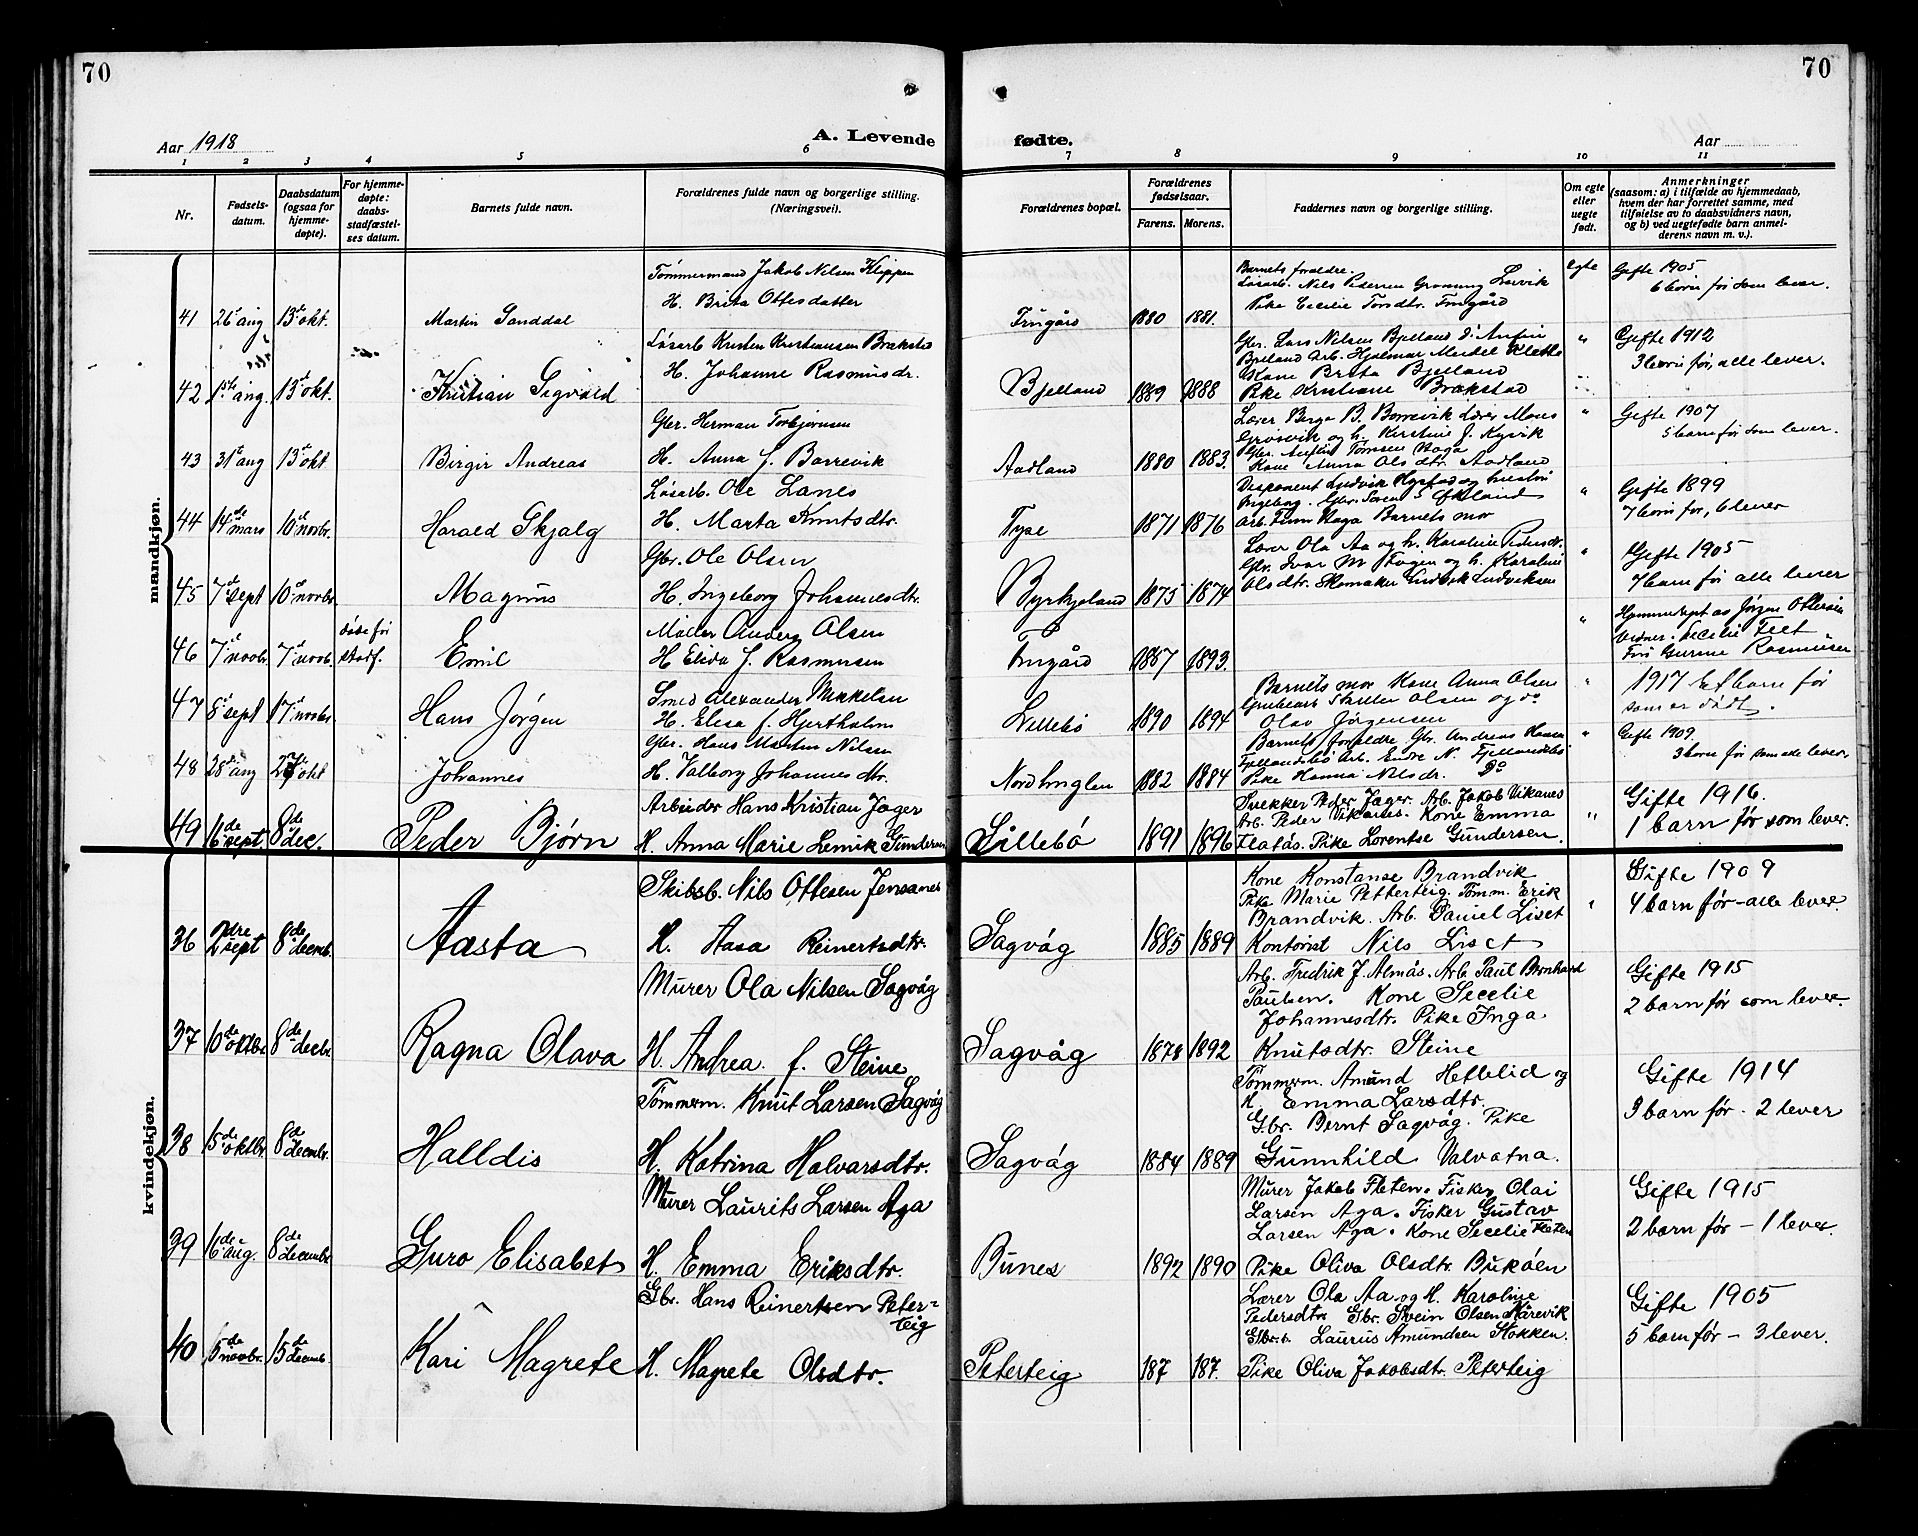 70
70
Aar 1918
A. Levende
fødte.
Aar
1 2 3 4 5 6 7 8 9 10 11
Nr.
Fødsels-
datum.
Daabsdatum
(ogsaa for
hjemme-
døpte).
For hjemme-
døpte:
daabs-
stadfæstel-
ses datum.
Barnets fulde navn.
Forældrenes fulde navn og borgerlige stilling.
(Næringsvei).
Forældrenes bopæl.
Forældrenes
fødselsaar.
Farens. Morens.
Faddernes navn og borgerlige stilling.
Om egte
eller
uegte
født.
Anmerkninger
(saasom: a) i tilfælde av hjemmedaab,
hvem der har forrettet samme, med
tilføielse av to daabsvidners navn,
og b) ved uegtefødte barn anmel-
derens navn m. v.).
mandkjøn.
Tømmermand Jakob Nilsen Klippen
H. Brita Ottesdatter
41 26 aug 13de okt. Martin Sanddal
Frugård 1880 1881.
Barnets forældre.
Løsarb. Nils Pedersen Gronning
Pike Cecilie Torsdtr. Frugård
egte
Gifte 1905
6 børn før som lever.
Løsarb Kristen Kristiansen Brakstad
H. Johanne Rasmusdr.
42 1ste aug. 13de okt. Kristian Sigvald
Bjelland 1889 1888
Gbr. Lars Nilsen Bjelland
Bjelland Arb. Hjalmar
Kone Brita Bjelland
Pike Kristiane Brakstad
"
Gifte 1912
3 børn før, alle lever.
Gbr. Herman Torbjørnsen
H. Anna f. Borrevik
43 31te aug 13de okt Birgir Andreas
Aadland 1880 1883.
Lærer Berge B. Borrevik Lærer Mons
Grosvik og h. Kirstine J. Kyvik
Kone Anna Olsdtr. Aadland
"
Gifte 1907
5 barn før som lever.
Løsarb. Ole Lanes
H. Marta Knutsdtr.
44 14de mars 10de novbr. Harald Skjalg
Tyse 1871 1876
Disponent Ludvik
Ingeborg. Gbr. Søren S. Ekeland
Arb. Finn Haga Barnets mor
"
Gifte 1899
7 børn før, 6 lever
Gbr. Ole Olsen
H. Ingeborg Johannesdtr.
45 7de sept 10de novbr. Magnus
Byrkjeland 1875 1874
Lærer Ola Aa og h. Karoline Pedersdtr.
Gbr. Ivar M og h. Karoline
Olsdtr. Skomaker Ludvik Ludviksen
"
Gifte 1905
7 barn før alle lever
Maler Anders Olsen
H Elida f. Rasmusen
46 7de novbr. 7de novb. døde før stadf. Emil
Frugård 1867 1893.
"
Hjemmedøpt av Jørgen Ottersen
Vidner. Cecilie
Fru Gurine Rasmusen
Smed Alexander Mikkelsen
H. Elisa f. Hjertholm
47 8de sept 17de novbr. Hans Jørgen
Lillebø 1890 1894
Barnets mor Kone Anna Olsen
Grubearb. Olsen og do
Olav Jørgensen
"
1917 Et barn før
som er dødt.
Gbr. Hans Martin Nilsen
H. Valborg Johannesdtr.
48 28de aug 27de okt Johannes
Nordhuglen 1882 1884
Barnets forældre Gbr. Andreas Hansen
Fjellandsbø Arb. Endre N. Fjellandsbø
Pike Hanna Nilsdr. Do
"
Gifte 1909.
3 børn før som alle lever.
Arbeider Hans Kristian Jæger
H. Anna Marie Lemik Gundersen
49 16de sept 8de dec. Peder Bjørn
Lillebø 1891 1896
Snekker Peder Jæger. Arb. Jakob Vikanes
Arb. Peder Vikanes. Kone Emma
Flatås. Pike Lorentse Gundersen.
"
Gifte 1916.
1 barn før som lever.
kvindekjøn.
Skibsb. Nils Ottesen Jensanes
H. Aasa Reinertsdtr.
36 2dre sept 8de decmb. Aasta
Sagvåg 1885 1889
Kone Konstanse Brandvik
Pike Marie Petterteig. Tømm. Erik
Brandvik. Arb. Daniel Liset
Kontorist Nils Liset
"
Gifte 1909
4 barn før - alle lever.
Murer Ola Nilsen Sagvåg
H. Andrea f. Steine
37 10de oktbr. 8de decbr. Ragna Olava
Sagvåg 1878 1892
Arb. Fredrik J. Almås. Arb Paul Bernhard
Paulsen. Kone Secelie
Johannesdtr. Pike Inga
Knutsdtr. Steine
Gifte 1915
2 barn før som lever.
Tømmerm. Knut Larsen Sagvåg
H. Katrina Halvarsdtr.
38 15de oktbr. 8de decmbr. Halldis
Sagvåg 1884 1889
Tømmerm. Amund Hetlelid og
H. Emma Larsdtr.
Gbr. Bernt Sagvåg. Pike
Gunnhild Valvatna.
Gifte 1914
3 barn før - 2 lever
Murer Laurits Larsen Aga
H. Emma Eriksdtr.
39 16de aug. 8de decembr Guro Elisabet
Bunes 1892 1890
Murer Jakob Fleten. Fisker Olai
Larsen Aga. Fisker Gustav
Larsen Aga. Kone Secelie Fleten
Pike Oliva Olsdtr. Bukøen
Gifte 1915
2 barn før - 1 lever.
Gbr. Hans Reinertsen Peter=
teig
H. Magrete Olsdtr.
40 5de novbr. 15de decemb. Kari Magrete
Peterteig 187 187.
Lærer Ola Aa og H. Karoline
Pedersdtr. Gbr. Svein Olsen Kårevik
Gbr. Laurus Amundsen Stokken.
Pike Oliva Jakobsdtr. Peterteig
Gifte 1905
5 barn før - 3 lever.